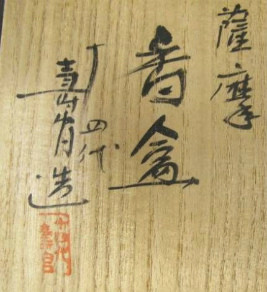 薩摩
香盒
十四代
壽官造